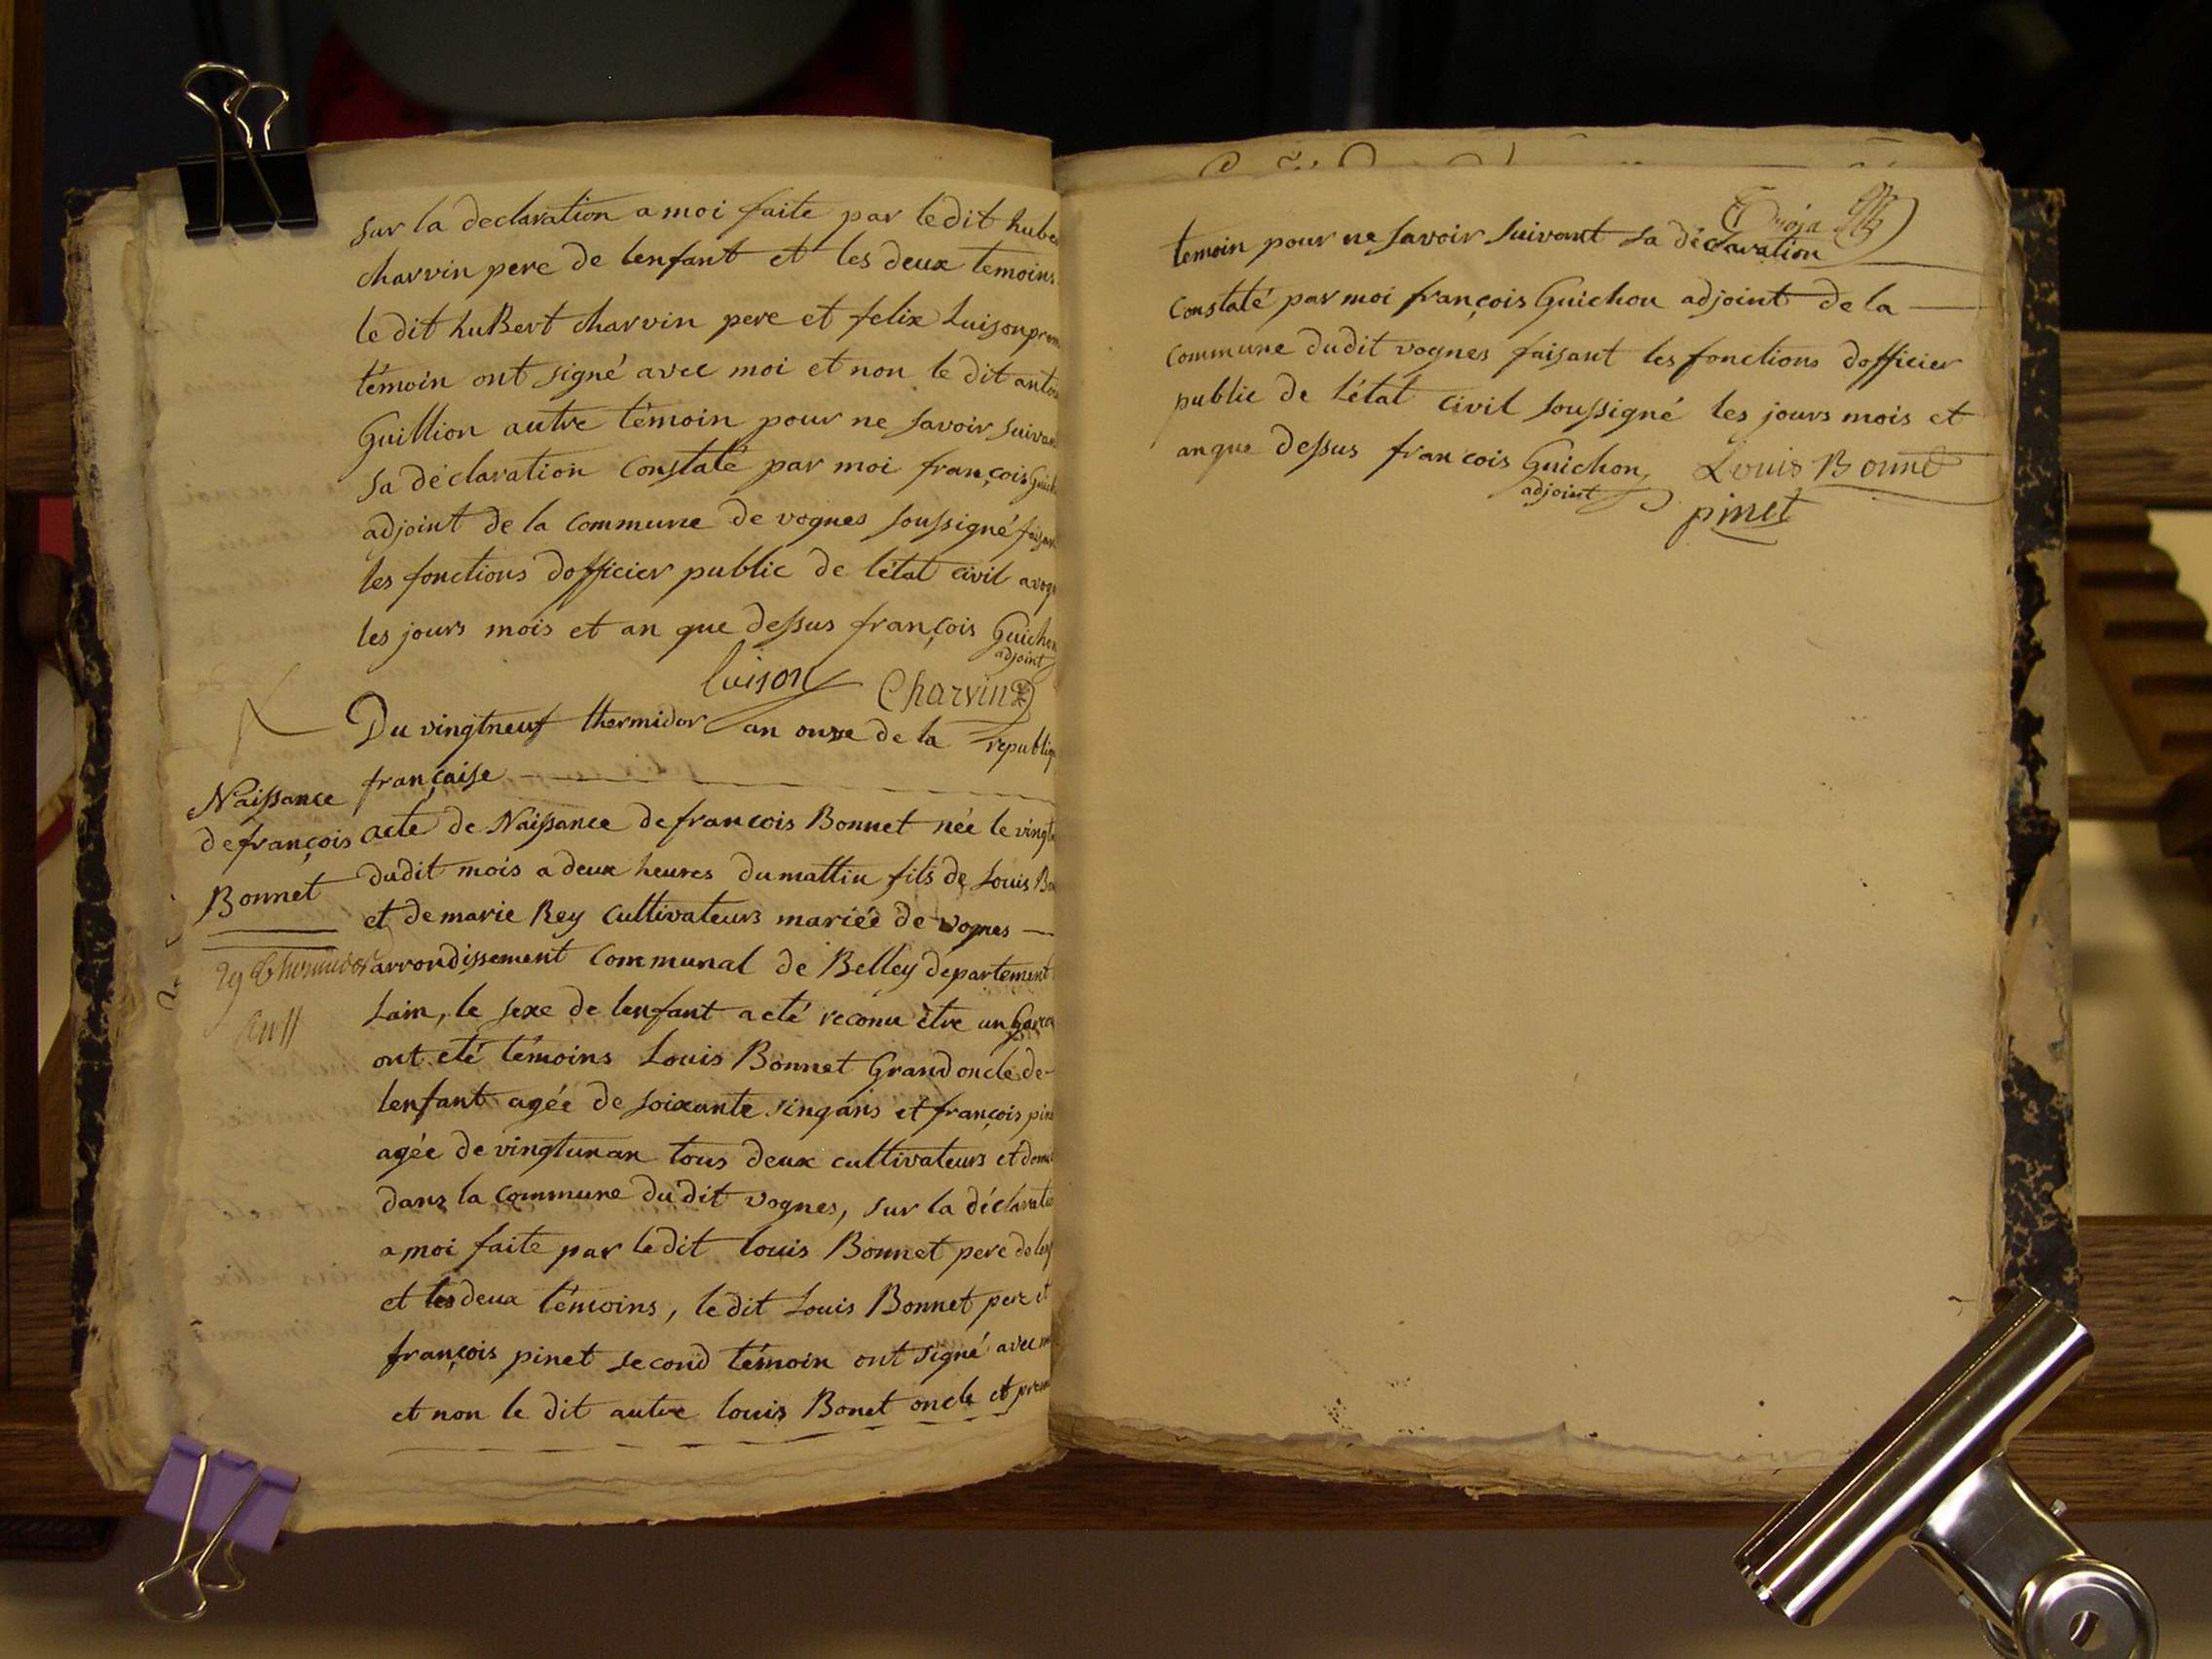 sur la declaration a moi faite par ledit hube
charvin pere de lenfant et les deux temoins
le dit huBert charvin pere et felix Luison prem
témoin ont signé avec moi et non le dit antoi
Guillion autre témoin pour ne savoir suivan
sa déclaration Constaté par moi françois Guich
adjoint de la Commune de vognes soussigné faisan
les fonctions dofficier public de létat civil avog
les jours mois et an que dessus françois Guichon
adjoint
luison Charvin
Du vingtneuf thermidor an onze de la republiq
française
Naissance
de françois
Bonnet
29 thermidor
an 11
acte de Naissance de francois Bonnet née le vingt
dudit mois a deux heures du mattin fils de Louis Bo
et de marie Rey Cultivateurs mariée de vognes
arrondissement Communal de Belley departement
Lain, le sexe de lenfant a eté reconu être un Garco
ont eté témoins Louis Bonnet Grand oncle de
lenfant agée de soixante sinq ans et françois pin
agée de vingtunan tous deux cultivateurs et domi
dans la Commune du dit vognes, sur la déclaratio
a moi faite par ledit louis Bonnet pere de len
et les deux témoins, ledit Louis Bonnet pere et
françois pinet second témoin ont signé avec m
et non le dit autre louis Bonet oncle et prem
temoin pour ne savoir suivant sa déclaration
Constaté par moi françois Guichon adjoint de la
Commune dudit vognes faisant les fonctions dofficier
public de létat civil soussigné les jours mois et
an que dessus francois Guichon Louis Bonnet
adjoint pinet